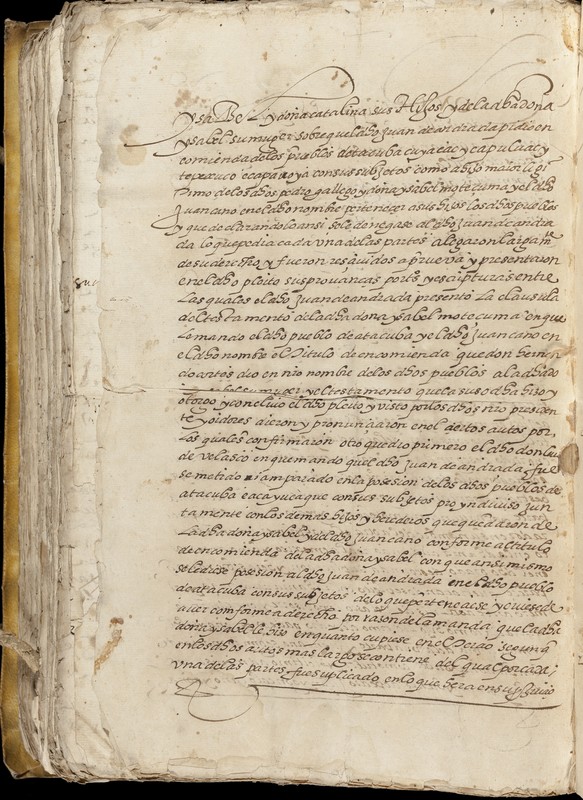 ysaBel y doña catalina sus Hijos y de la dha doña
ysabel su muger sobre quel dho Juan de andrada pidio en
comienda de los pueblos de tacuba cuyacac y capuluac y
tepexuco ecapa toya con sus subjetos como a hijo maior legi
timo de los dhos pedro gallego y doña ysabel moteçuma y el dho
Juan cano en el dho nombre pertenecer a sus hijos los dhos pueblos
y que declarandolo ansi se le denegase al dho Juan de andra
da lo que pedia cada una de las partes alegaron largamte
de su derecho y fueron resçividos a prueva y presentaron
en el dho pleito sus provanças ports y escripturas entre
Las quales el dho Juan de andrada presento La clausula
del testamento de la dha doña ysabel moteçuma en que
Le mando el dho pueblo de atacuba y el dho Juan cano en
el dho nombre el Titulo de encomienda que don hernan
do cortes dio en nro nombre de los dhos pueblos a la dha do
muger y el testamento que la susodha hizo y
otorgo y concluso el dho pleito y visto por los dhos nro presiden
te y oidores dieron y pronunciaron en el ciertos autos por
Los quales confirmaron otro que dio primero el dho don luis
de velasco en que mando quel dho Juan de andrada fue
se metido e amparado en la posesion de los dhos pueblos de
atacuba e acayucaque con sus subjetos pro yndiviso jun
tamente con los demas hijos y herederos que quedaron de
La dha doña ysabel y del dho Juan cano conforme al titulo
de encomienda de la dha doña ysabel con que ansimismo
se le diese posesion al dho Juan de andrada en el dho pueblo
de atacuba con sus subjetos de lo que perteneciese y uviese de
aver conforme a derecho por rason de la manda que la dha
doña ysabel le hiso en quanto cupiese en el Tercio segun q
en los dhos autos mas largo se contiene del qual por cada
una de las partes fue suplicado en lo que hera en su perjuicio